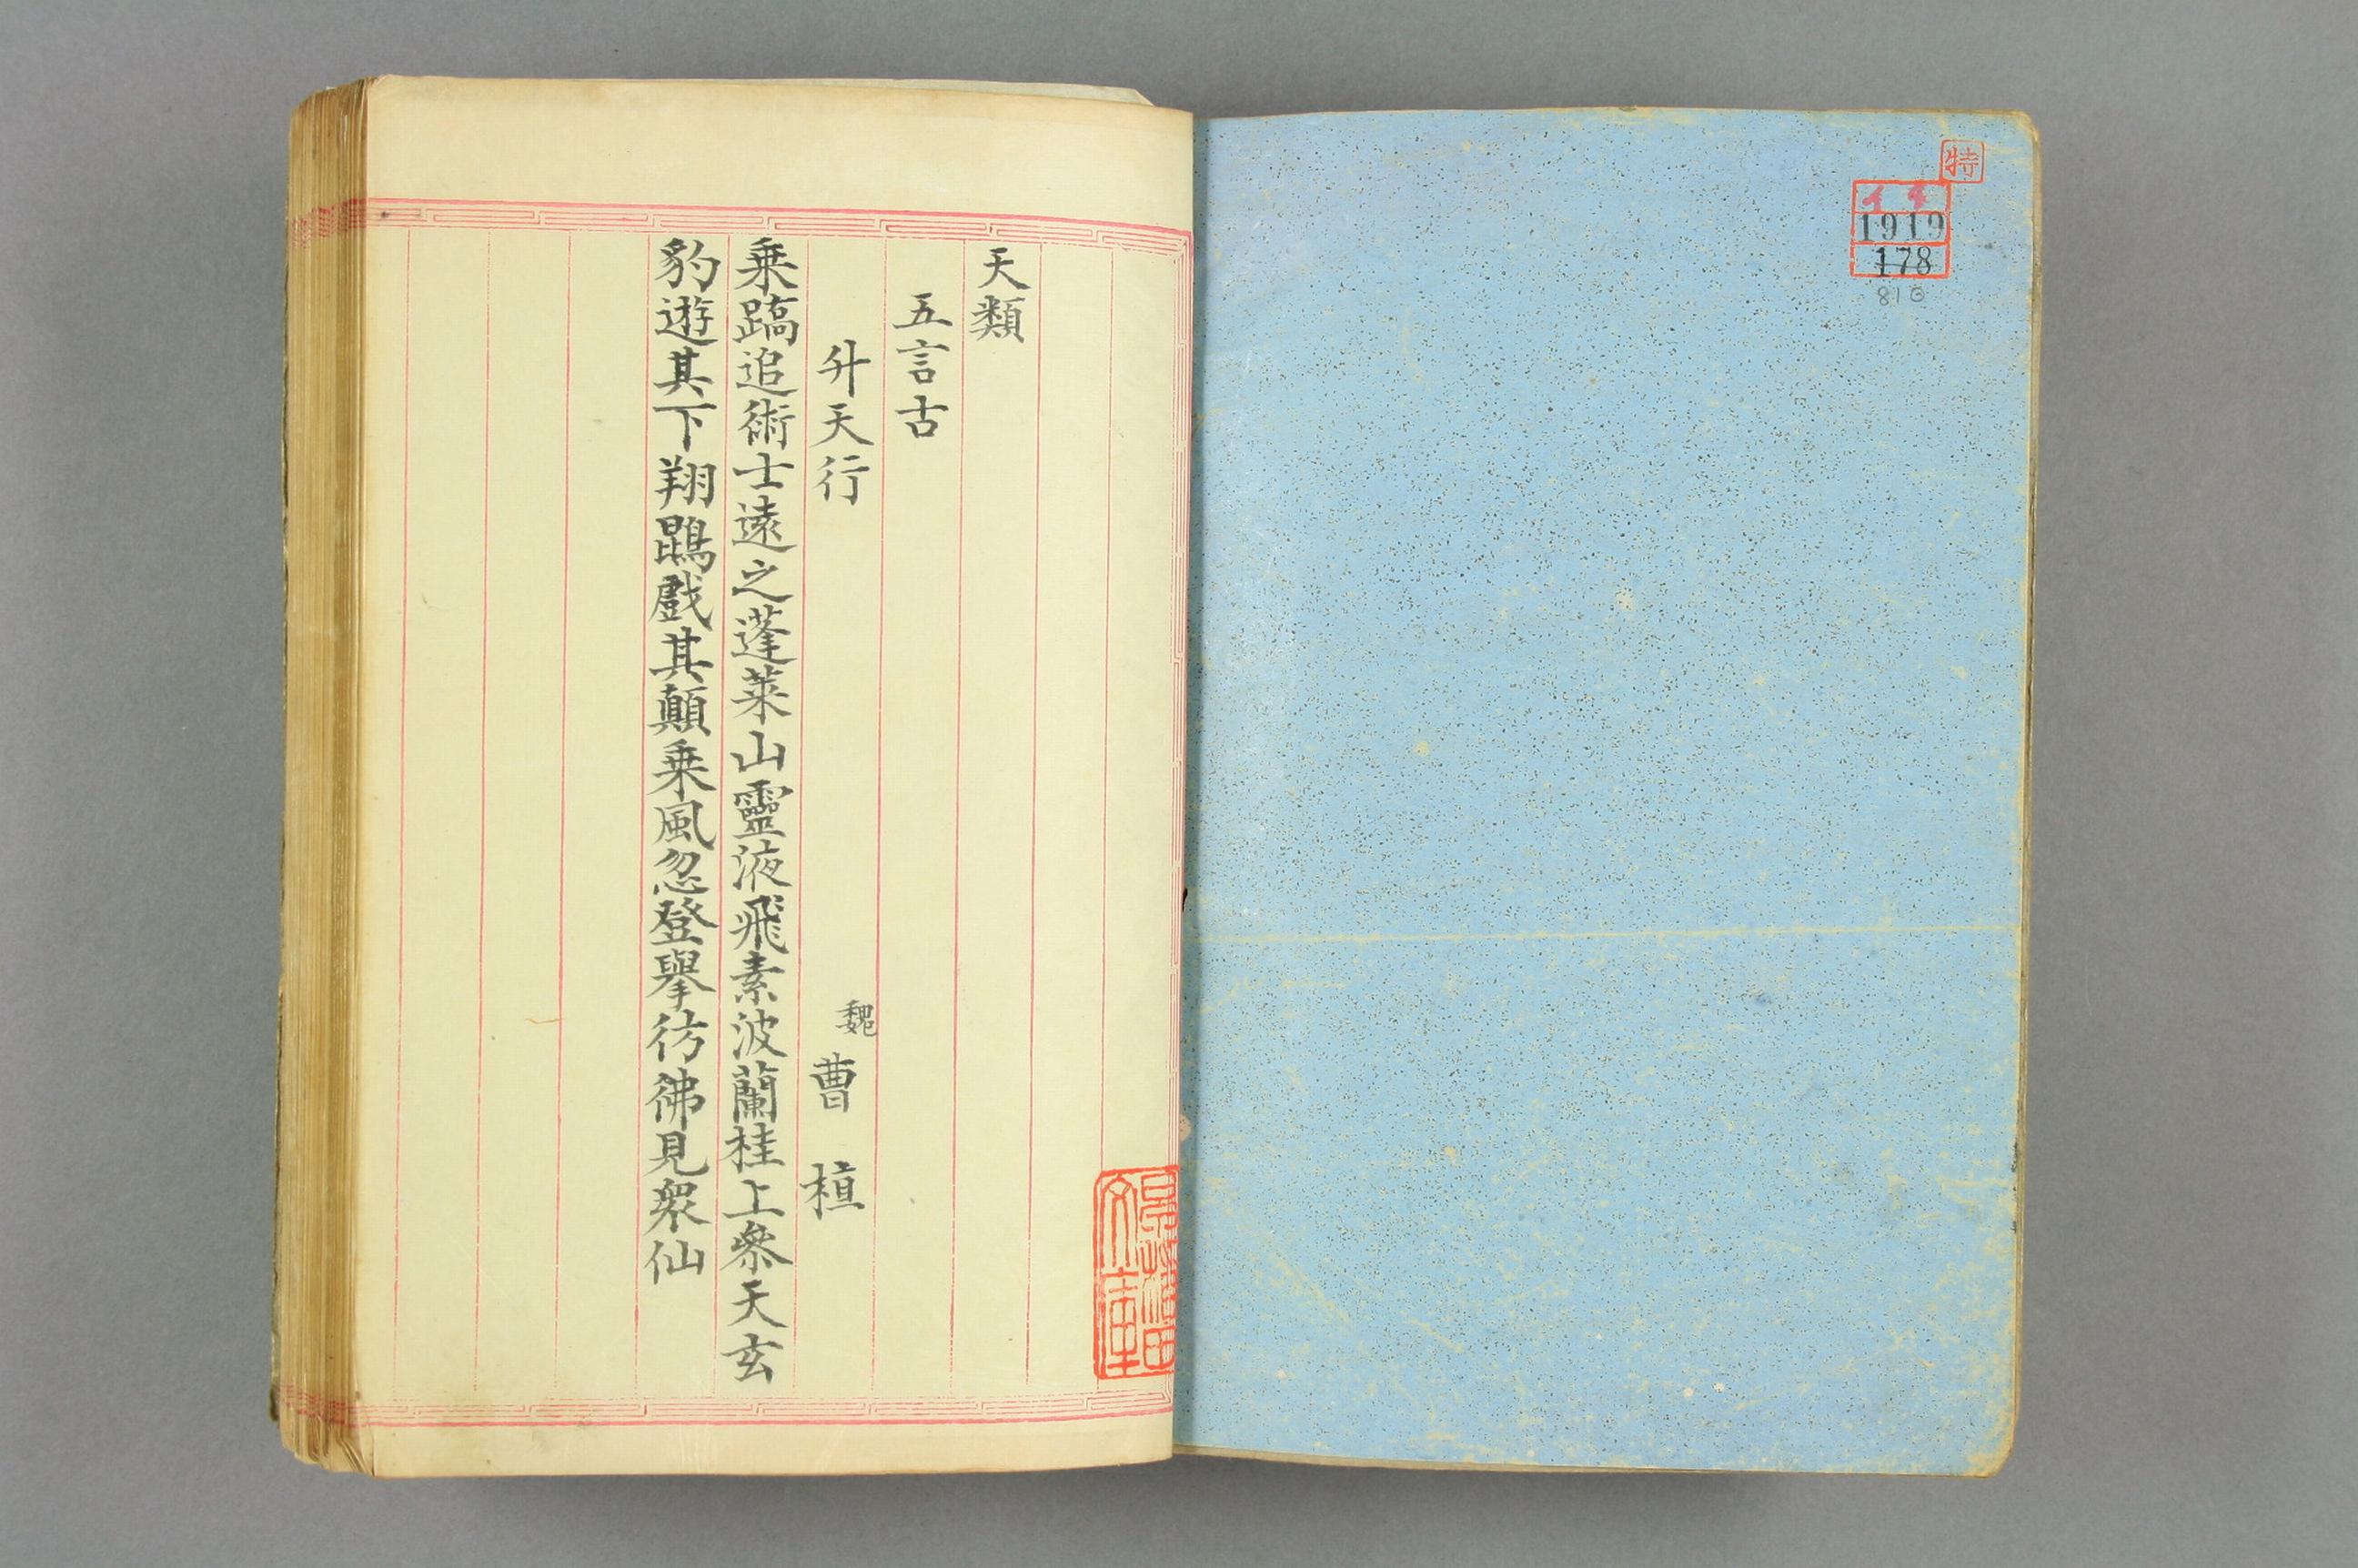 特
イ 4
1919
178
810
天類
五言古
升天行 魏 曹 植
乗蹻追術士遠之蓬萊山靈液飛素波蘭桂上參天玄
豹遊其下翔鵾戲其顛乗風忽登舉彷彿見衆仙
早稲田文庫